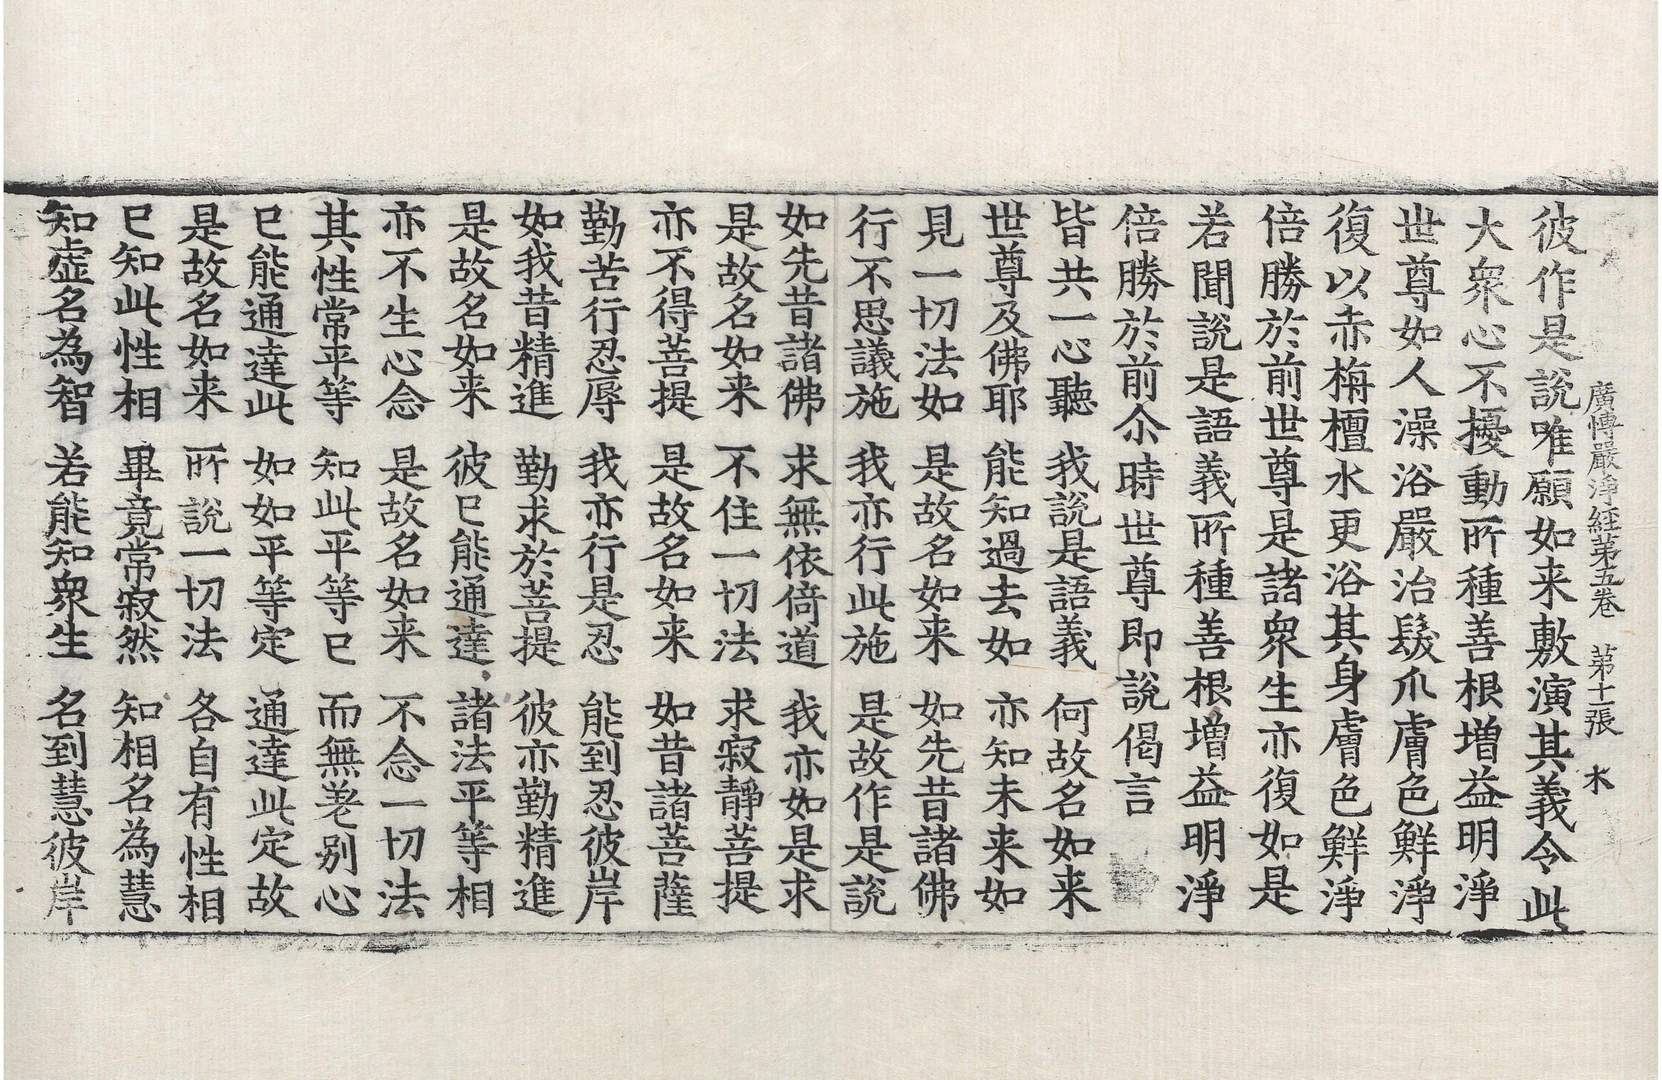 廣博嚴淨經第五卷　第十二張　木
彼作是說唯願如来敷演其義令此
大衆心不擾動所種善根增益明淨
世尊如人澡浴嚴治髮爪膚色鮮淨
復以赤栴檀水更浴其身膚色鮮淨
倍勝於前世尊是諸衆生亦復如是
若聞說是語義所種善根增益明淨
倍勝於前尒時世尊即說偈言
皆共一心聽　我說是語義　何故名如来
世尊及佛耶　能知過去如　亦知未来如
見一切法如　是故名如来　如先昔諸佛
行不思議施　我亦行此施　是故作是說
如先昔諸佛　求無依倚道　我亦如是求
是故名如来　不住一切法　求寂靜菩提
亦不得菩提　是故名如来　如昔諸菩薩
勤苦行忍辱　我亦行是忍　能到忍彼岸
如我昔精進　勤求於菩提　彼亦勤精進
是故名如来　彼已能通達　諸法平等相
亦不生心念　是故名如来　不念一切法
其性常平等　知此平等已　而無差別心
已能通達此　如如平等定　通達此定故
是故名如来　所說一切法　各自有性相
已知此性相　畢竟常寂然　知相名為慧
知虛名為智　若能知衆生　名到慧彼岸